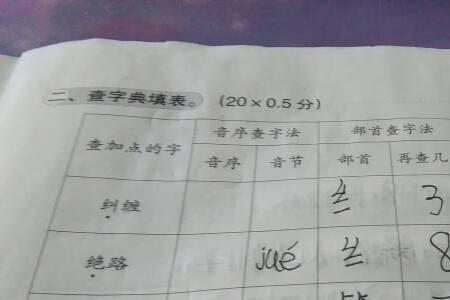 二、查字典填表。 (20×0.5分)
查加点的字 音序查字法 部首查字法
音序 音节 部首 再查几
纠缠 纟 3
绝路 jué 纟 8